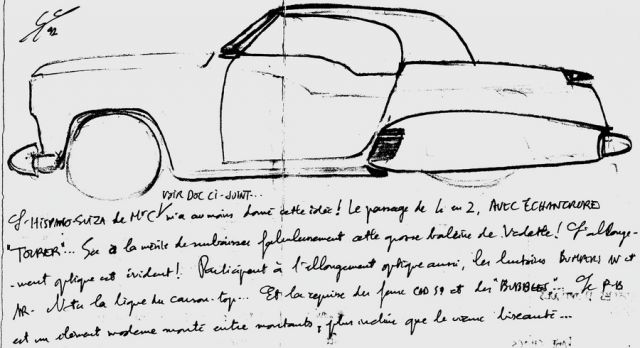 92
VOIR DOC CI-JOINT...
HISPANO-SUIZA de Mr C m'a au moins donné cette idée! Le passage de 4 en 2, AVEC ÉCHANCRURE
"TOURER"... Ça a le mérite de surbaisser fabuleusement cette grosse baleine de Vedette! L'allonge-
-ment optique est évident! Participent à l'allongement optique aussi, les BUMPERS AV et
AR. la ligne du carson-top... Et la reprise des feux CAD 59 et des "BUBBLES"... Le P-B
est un élément moderne monté entre montants, plus incliné que le vieux biseauté...